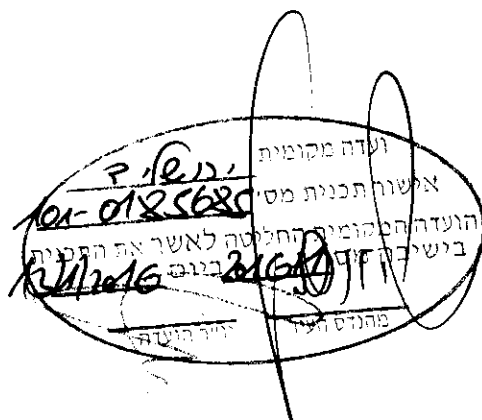 ועדה מקומית ירושלים
אישור תכנית מס' 101-0185685
הועדה המקומית החליטה לאשר את התכנית
בישיבה מס' ביום 13/1/2016
מהנדס העיר יו"ר הועדה